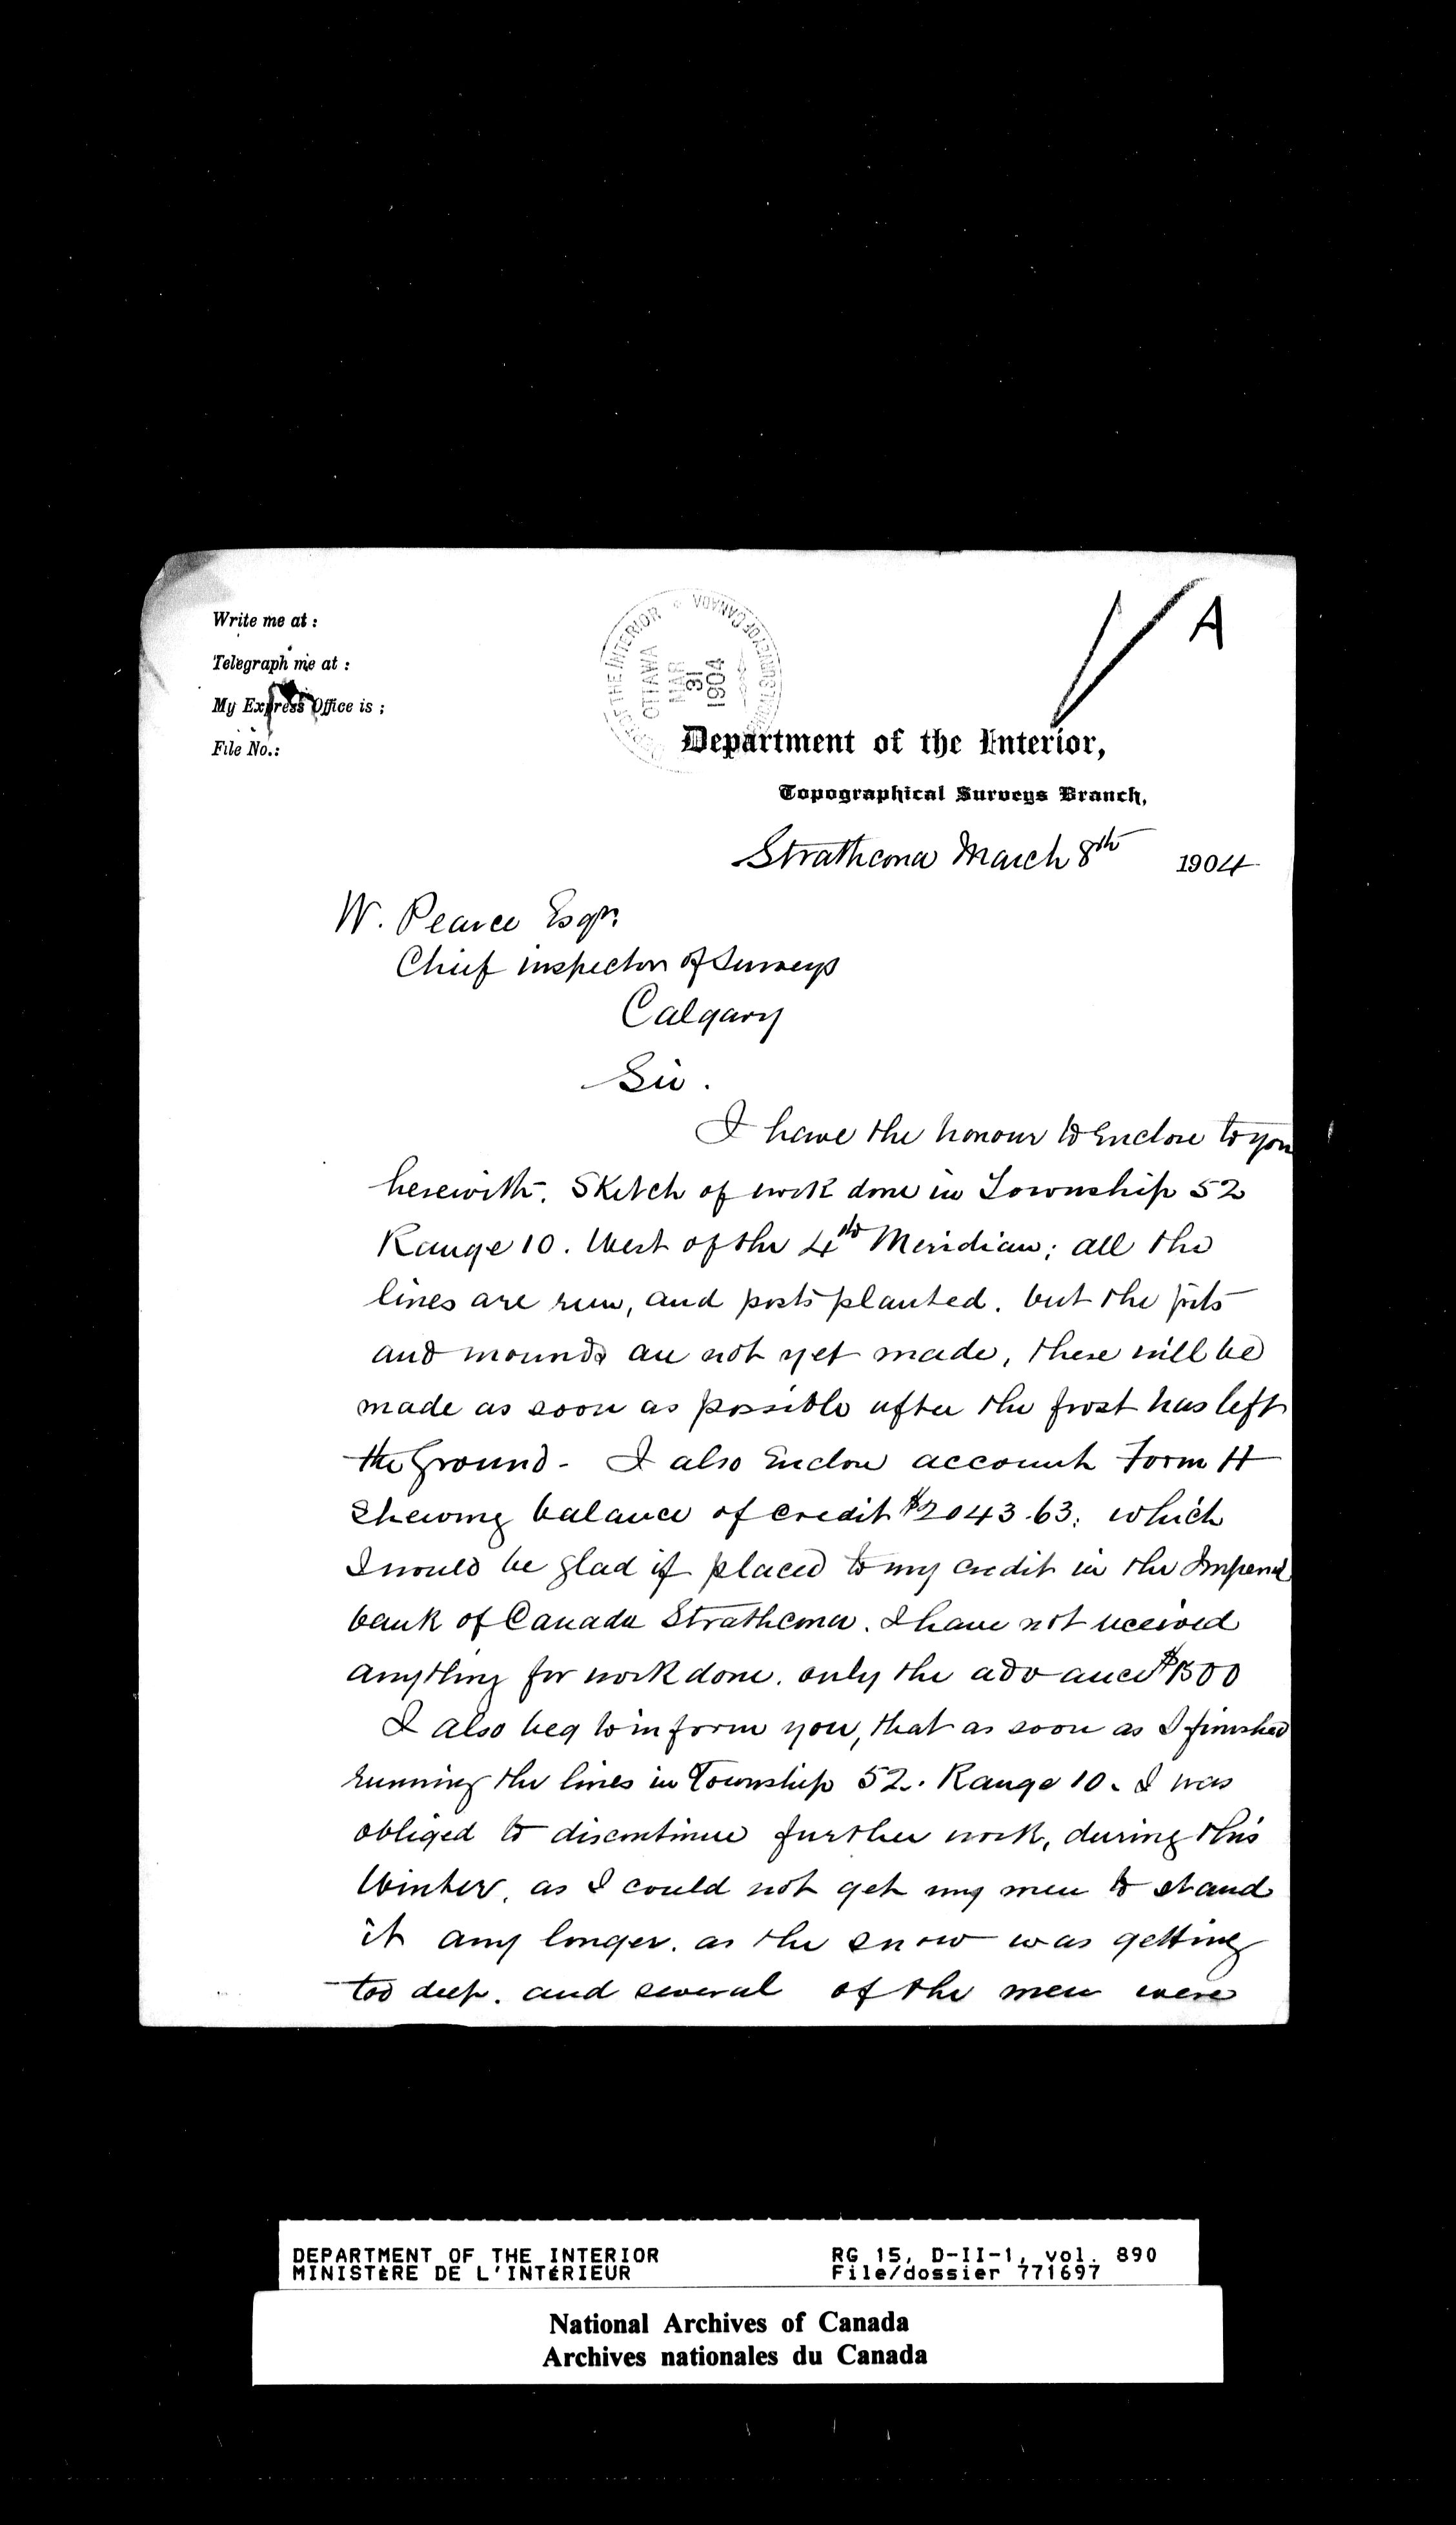 Write me at :
Telegraph me at :
My Express Office is ;
File No.:
A
OF THE INTERIOR
SURVEY OF CANADA
OTTAWA
MAR
31
1904
Department of the Interior,
Topographical Surveys Branch,
Strathcona March 8th 1904
W. Pearce Esqr.
Chief inspector of Surveys
Calgary
Sir.
I have the honour to Enclose to you
herewith. Sketch of work done in Township 52
Range 10. West of the 4th Meridian; all the
lines are run, and posts planted. but the pits
and mounds are not yet made, these will be
made as soon as possible after the frost has left
the Ground - I also Enclose account Form H
Shewing balance of credit $2043.63; which
I would be glad if placed to my credit in the Imperial
bank of Canada Strathcona. I have not received
anything for work done. only the advance $1500
I also beg to inform you, that as soon as I finished
running the lines in Township 52. Range 10. I was
obliged to discontinue further work, during this
Winter, as I could not get my men to stand
it any longer. as the snow was getting
too deep. and several of the men were
DEPARTMENT OF THE INTERIOR
MINISTÈRE DE L'INTÉRIEUR
RG 15, D-II-1, vol. 890
File/dossier 771697
National Archives of Canada
Archives nationales du Canada